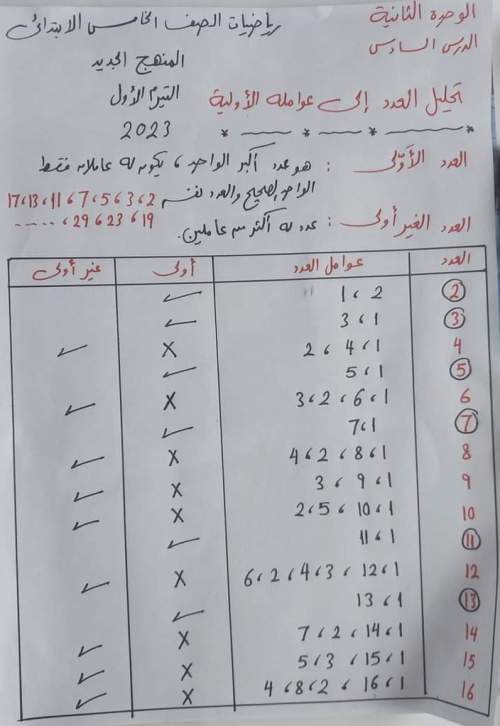 الوحدة الثانية
الدرس السادس
رياضيات الصف الخامس الابتدائي
المنهج الجديد
الترم الأول
2023
تحليل العدد إلى عوامله الأولية
العدد الأوّلى : هو عدد أكبر الواحد ، يكون له عاملان فقط
الواحد الصحيح والعدد نفسه 2، 3، 5، 6، 7، 11، 13، 17
19، 23، 29، .....
العدد الغير أولى : عدد له أكثر من عاملين.
العدد | عوامل العدد | أولى | غير أولى
2 | 2، 1 | ✓
3 | 1، 3 | ✓
4 | 1، 4، 2 | X | ✓
5 | 1، 5 | ✓
6 | 1، 6، 2، 3 | X | ✓
7 | 1، 7 | ✓
8 | 1، 8، 2، 4 | X | ✓
9 | 1، 9، 3 | X | ✓
10 | 1، 10، 5، 2 | X | ✓
11 | 1، 11 | ✓
12 | 1، 12، 3، 4، 2، 6 | X | ✓
13 | 1، 13 | ✓
14 | 1، 14، 2، 7 | X | ✓
15 | 1، 15، 3، 5 | X | ✓
16 | 1، 16، 2، 8، 4 | X | ✓